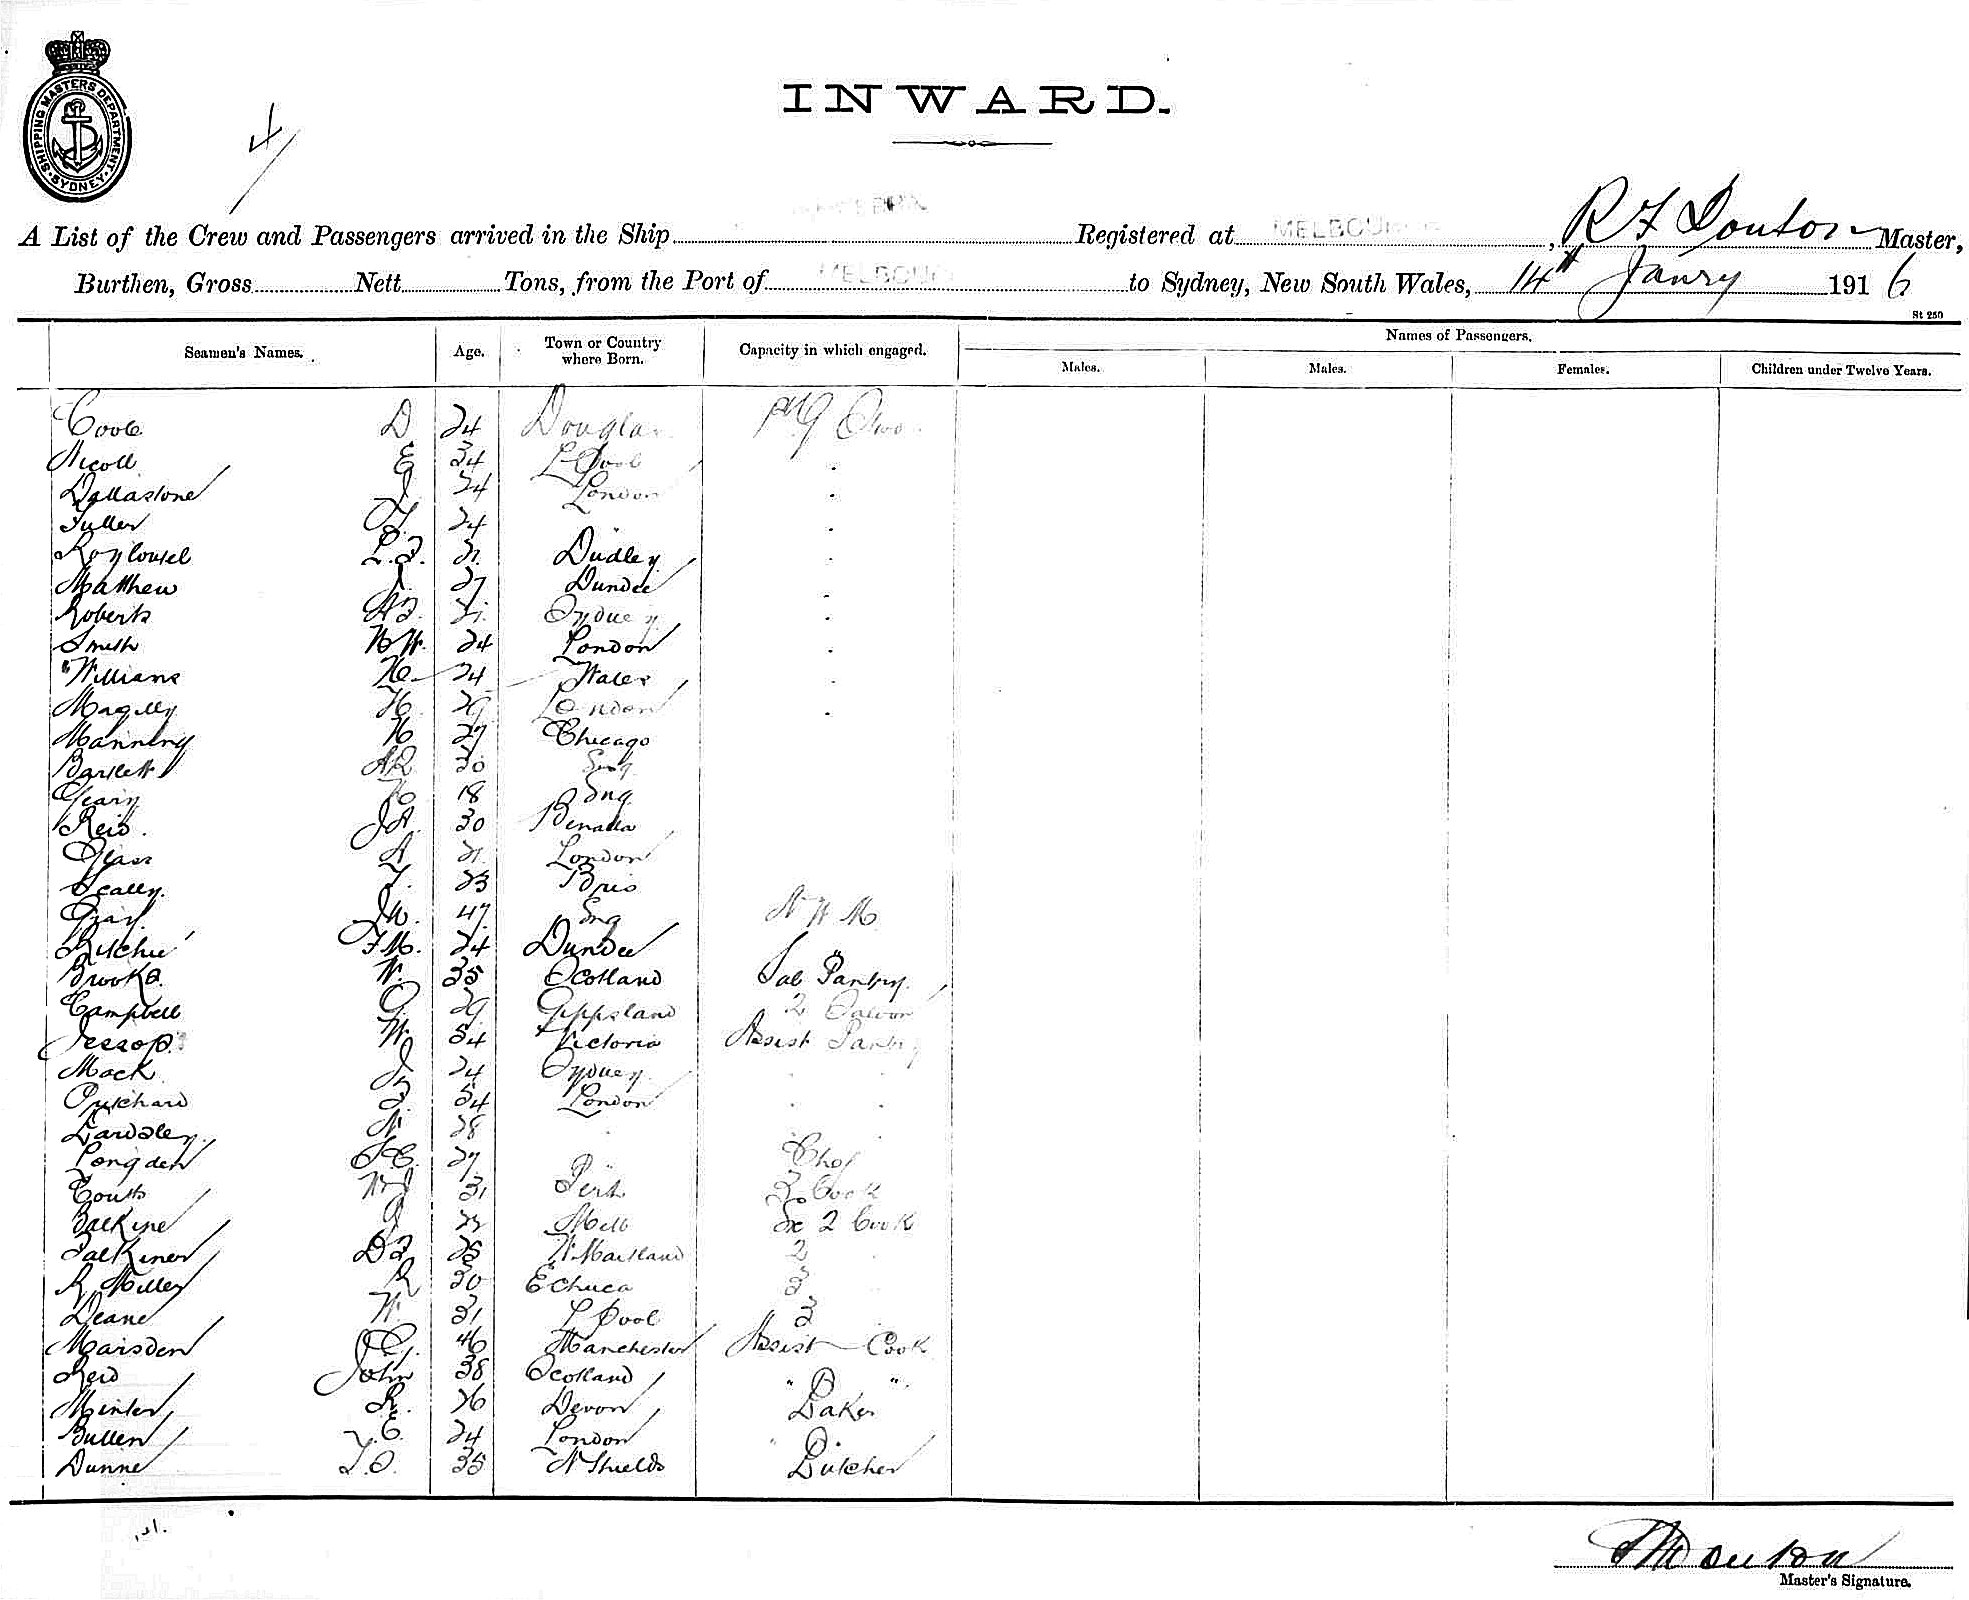 SHIPPING MASTERS DEPARTMENT. SYDNEY.
4/
INWARD.
A List of the Crew and Passengers arrived in the Ship Registered at MELBOURNE, R F Douton Master,
Burthen, Gross Nett Tons, from the Port of MELBOURNE to Sydney, New South Wales, 14th Janry 1916
St 250
Seamen's Names. Age. Town or Country where Born. Capacity in which engaged. Names of Passengers.
Males. Males. Females. Children under Twelve Years.
Coole D 24 Douglas
Nicoll E 34 L Pool
Dallastone J 24 London
Fuller 24 "
L.J. 21 Dudley
Matthew J. 27 Dundee
Roberts 21 Sydney
Smith 24 London
Williams H 24 Wales
Magilly H 29 London
Manning H 27 Chicago
Bartlett AR 30 Eng
Geary 18 Eng
Reid. JA. 30 Benalla
Glass A 21 London
Scally. T. 23 Bris
Gray. JW. 47 Eng N W M
Ritchie F M. 24 Dundee
Brooks. W. 35 Scotland Sal Pantry.
Campbell G 29 Gippsland 2 Saloon
Jessop. W. 54 Victoria Assist Pantry
Mack J 24 Sydney
Pritchard 54 London
Eardsley. 28
Longden 27 " Chef
Couts 31 Perth 3 Cook
J Melb Ex 2 Cook
Falkiner W Maitland 2
R Miller R 30 Echuca 3
Deane W. 31 L Pool 3
Marsden 46 Manchester Assist Cook
Reid John 38 Scotland " "
Minter R. 26 Devon Baker
Bullen E 24 London "
Dunne 35 N Shields Butcher
Master's Signature.